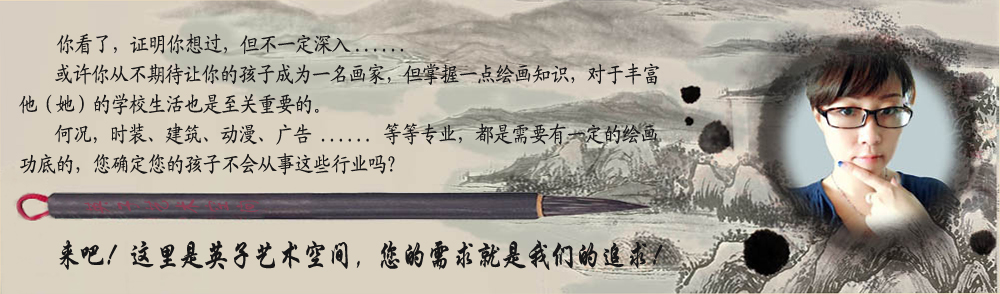 你看了，证明你想过，但不一定深入......
或许你从不期待让你的孩子成为一名画家，但掌握一点绘画知识，对于丰富
他（她）的学校生活也是至关重要的。
何况，时装、建筑、动漫、广告 ...... 等等专业，都是需要有一定的绘画
功底的，您确定您的孩子不会从事这些行业吗？
来吧！这里是英子艺术空间，您的需求就是我们的追求！